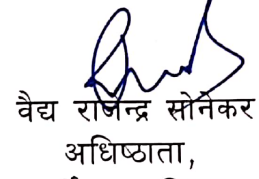 वैद्य राजेन्द्र सोनेकर
अधिष्ठाता,